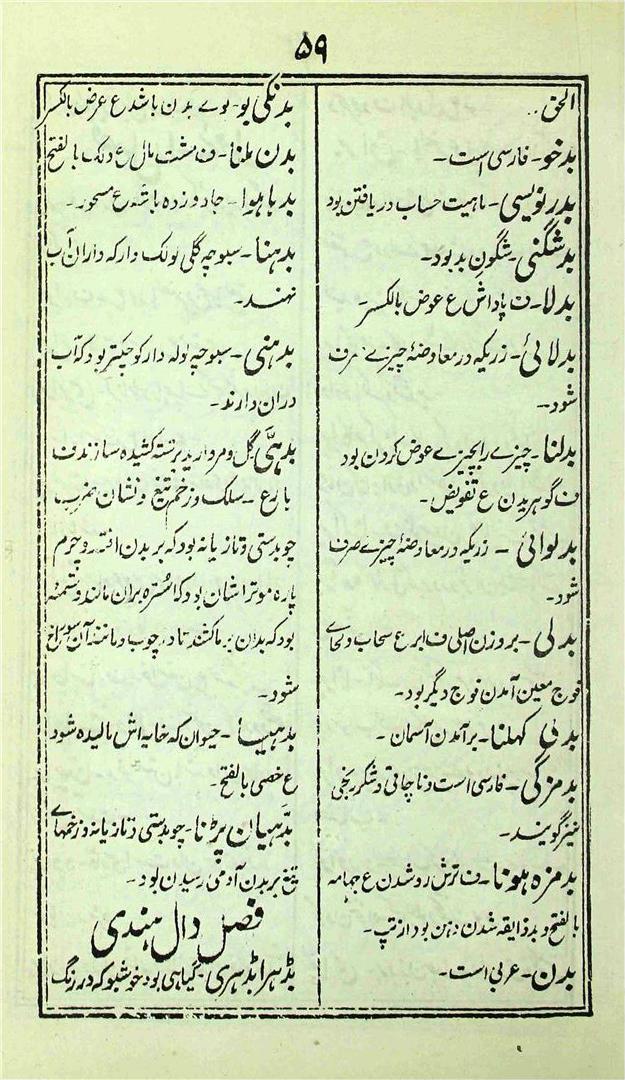 ۵۹
الحق..
بدخو - فارسی است -
بدرنویسی - ماہیت حساب دریافتن بود
بدشگنی - شگون بد بود -
بدلا - ف پاداش ع عوض بالکسر -
بدلائی - زریکہ در معاوضۂ چیزے صرف
شود -
بدلنا - چیزے را بچیزے عوض کردن بود
ف گوہریدن ع تفویض -
بدلوائی - زریکہ در معاوضۂ چیزے صرف
شود -
بدلی - بروزن اصلی ف ابر ع سحاب و بجاے
فوج معین آمدن فوج دیگر بود -
بدلی کہلنا - برآمدن آسمان -
بدمزگی - فارسی است و ناچاقی و شکررنجی
نیز گویند -
بدمزہ ہونا - ف ترش رو شدن ع جہامہ
بالفتح و بدذایقہ شدن دہن بود از تپ -
بدن - عربی است -
بدنکی بو - بوے بدن باشد ع عرض بالکسر
بدن ملنا - ف مشت مال ع دلک بالفتح
بدہا ہوا - جادو زدہ باشد ع مسحور -
بدہنا - سبوچہ گلی لولک دار کہ دران آب
نہند -
بدہنی - سبوچہ لولہ دار کوچکتر بود کہ آب
دران دارند -
بدہی گل و مروارید برشتہ کشیدہ سازند ف
بار ع - سلک و زخم تیغ و نشان ضرب
چوبدستی و تازیانہ بود کہ بر بدن افتد و چرم
پارہ موتراشان بود کہ استرہ بران مالند و تسمہ
بود کہ بدان برما کشند تا در چوب و مانند آن سوراخ
شود -
بدہیا - حیوان کہ خایہ اش مالیدہ شود
ع خصی بالفتح -
بدہیان پڑنا - چوبدستی و تازیانہ و زخمہاے
تیغ بر بدن آدمی رسیدن بود -
فصل دال ہندی
بڈہرا بڈہری - گیاہی بود خوشبو کہ در رنگ